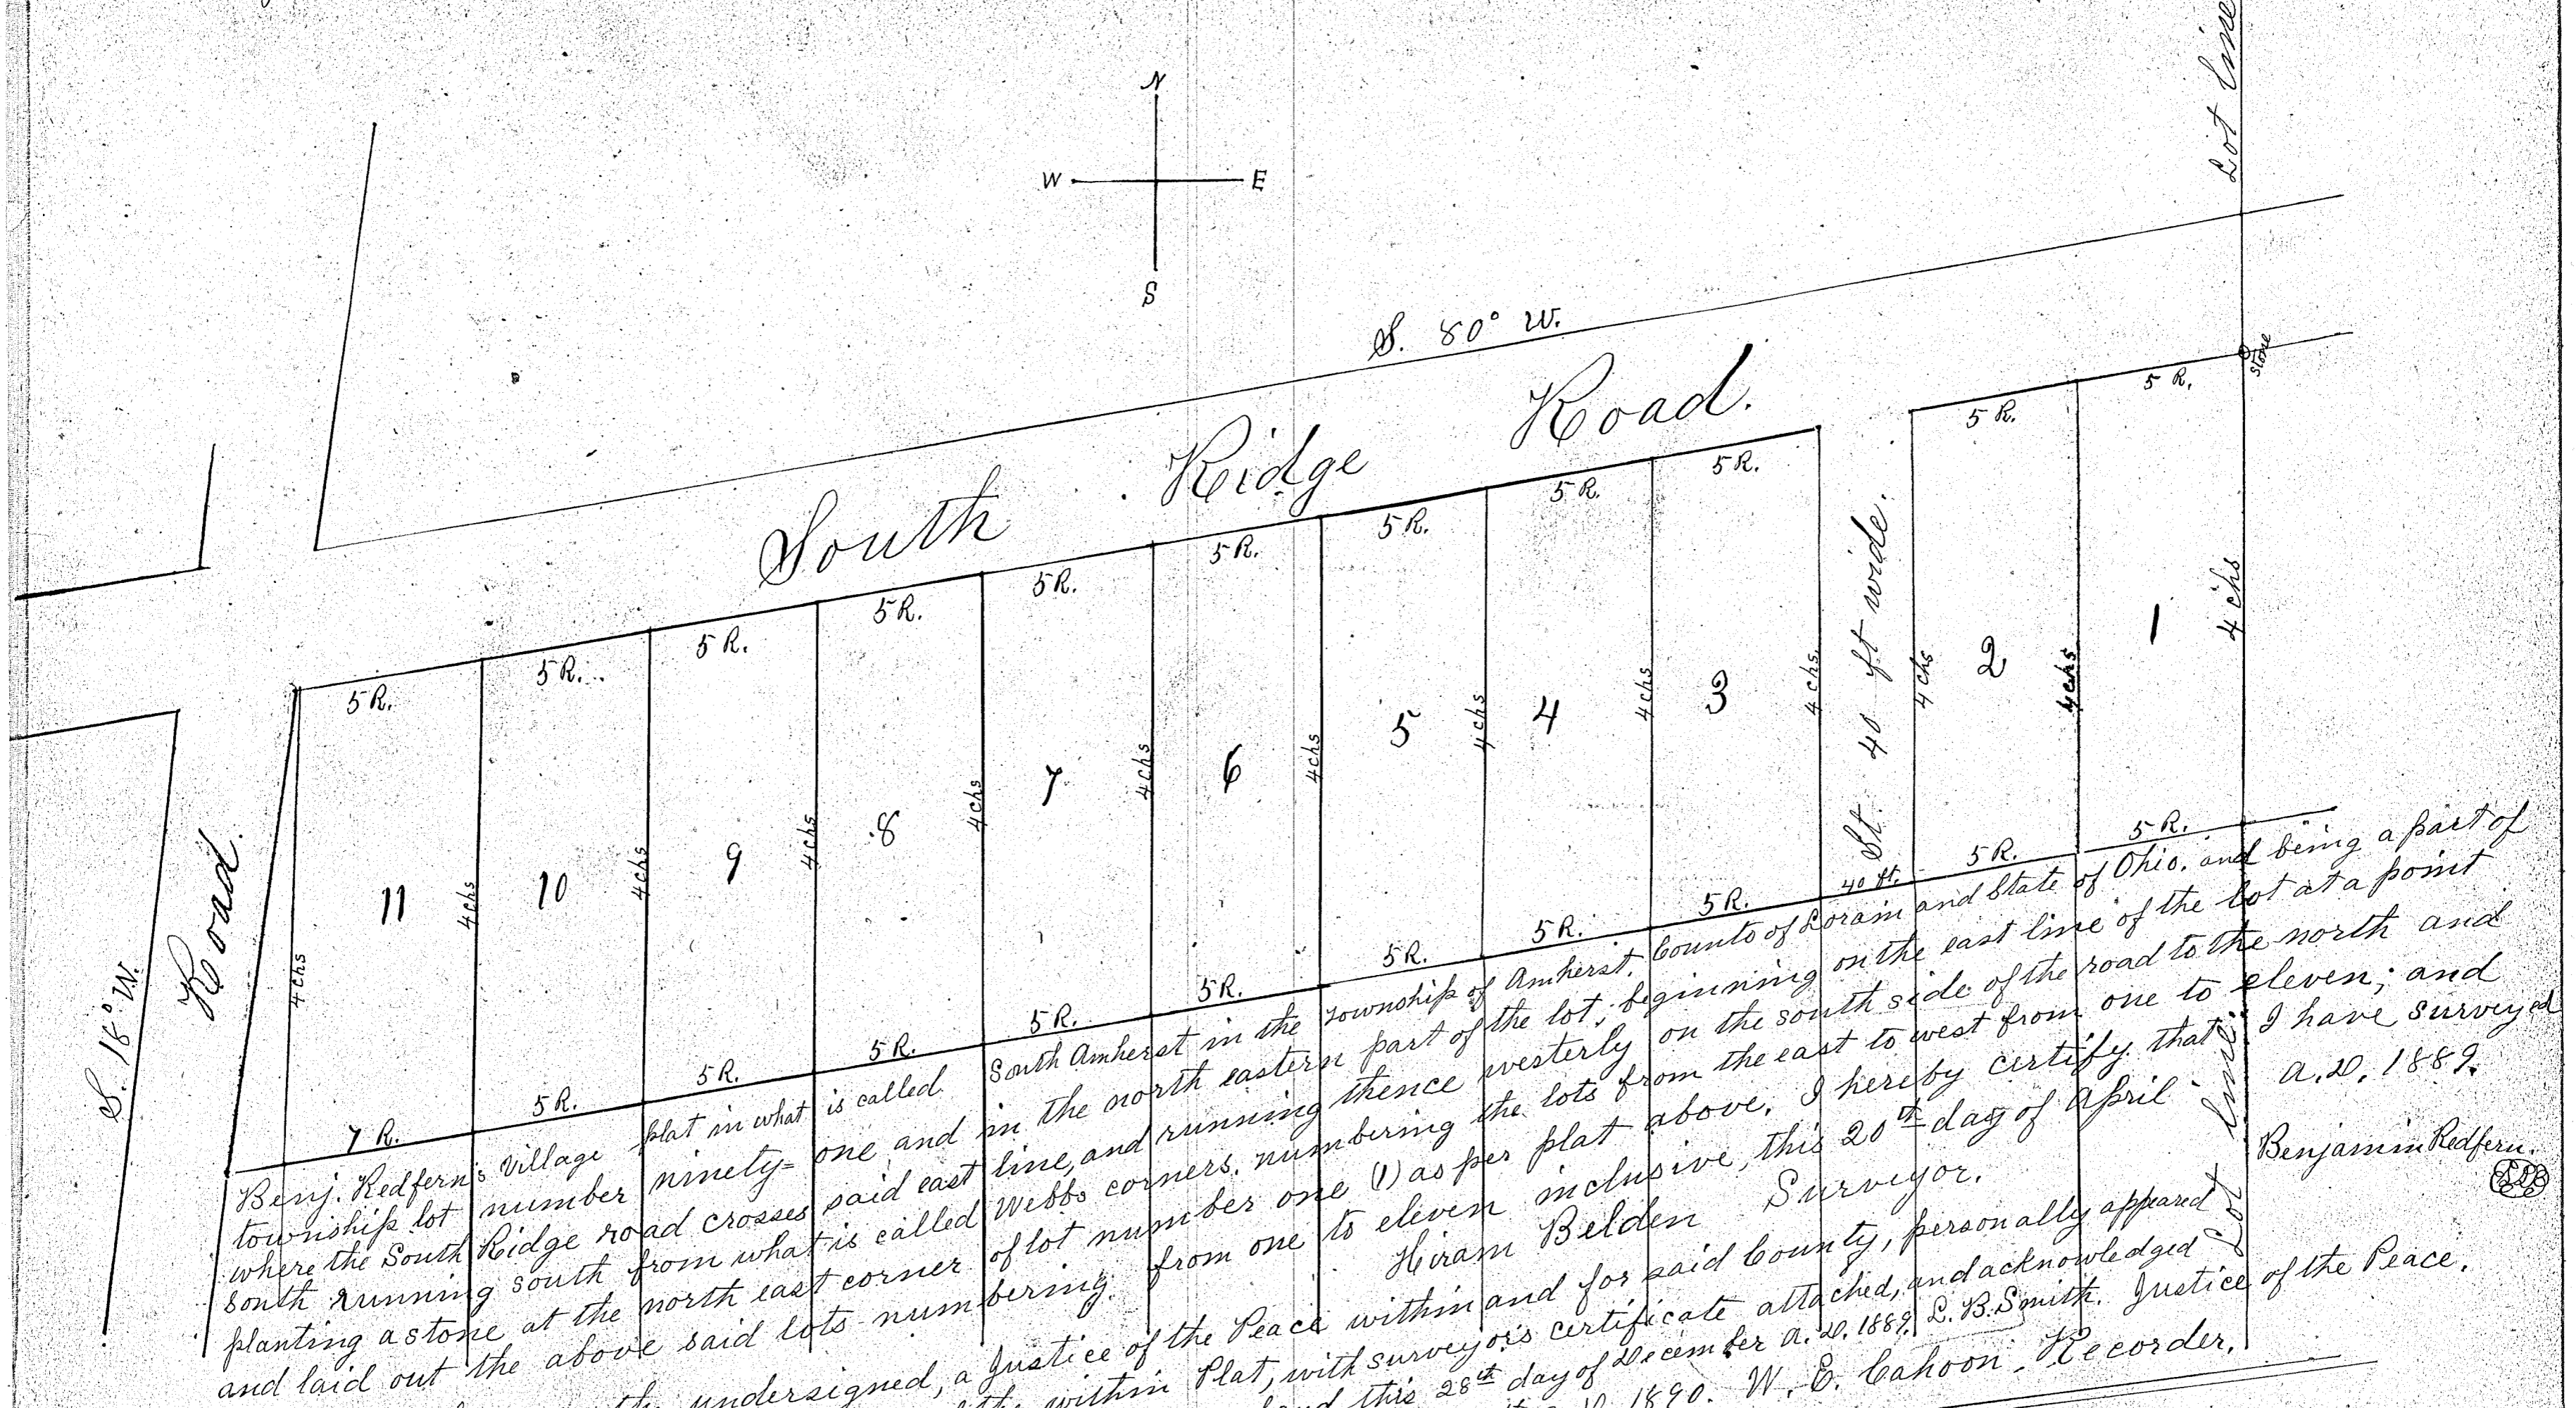 Lot Line
N
W E
S
S. 80° W.
South Ridge Road.
Stone
5 R.
5 R.
5 R.
5 R.
5 R.
5 R.
5 R.
5 R.
5 R.
5 R..
5 R.
St 40 ft wide.
4 chs
4 chs
4 chs
4 chs
4 chs
4 chs
4 chs
4 chs
4 chs
4 chs
4 chs
4 chs
4 chs
11 10 9 8 7 6 5 4 3 2 1
S. 18° W.
Road.
7 R. 5 R. 5 R. 5 R. 5 R. 5 R. 5 R. 5 R. 5 R. 40 ft. 5 R. 5 R.
Lot Line
Benj. Redfern's Village plat in what is called South Amherst in the township of Amherst, County of Lorain and State of Ohio, and being a part of
township lot number ninety= one and in the north eastern part of the lot, beginning on the east line of the lot at a point
where the South Ridge road crosses said east line, and running thence westerly on the south side of the road to the north and
south running south from what is called Webbs corners, numbering the lots from the east to west from one to eleven; and
planting a stone at the north east corner of lot number one (1) as per plat above. I hereby certify that I have surveyed
and laid out the above said lots numbering from one to eleven inclusive, this 20th day of April A.D. 1889.
Hiram Belden Surveyor.
Benjamin Redfern.
undersigned, a Justice of the Peace within and for said County, personally appeared
within Plat, with surveyor's certificate attached, and acknowledged
this 28th day of December A.D. 1889. L. B. Smith. Justice of the Peace.
1890. W. E. Cahoon. Recorder.